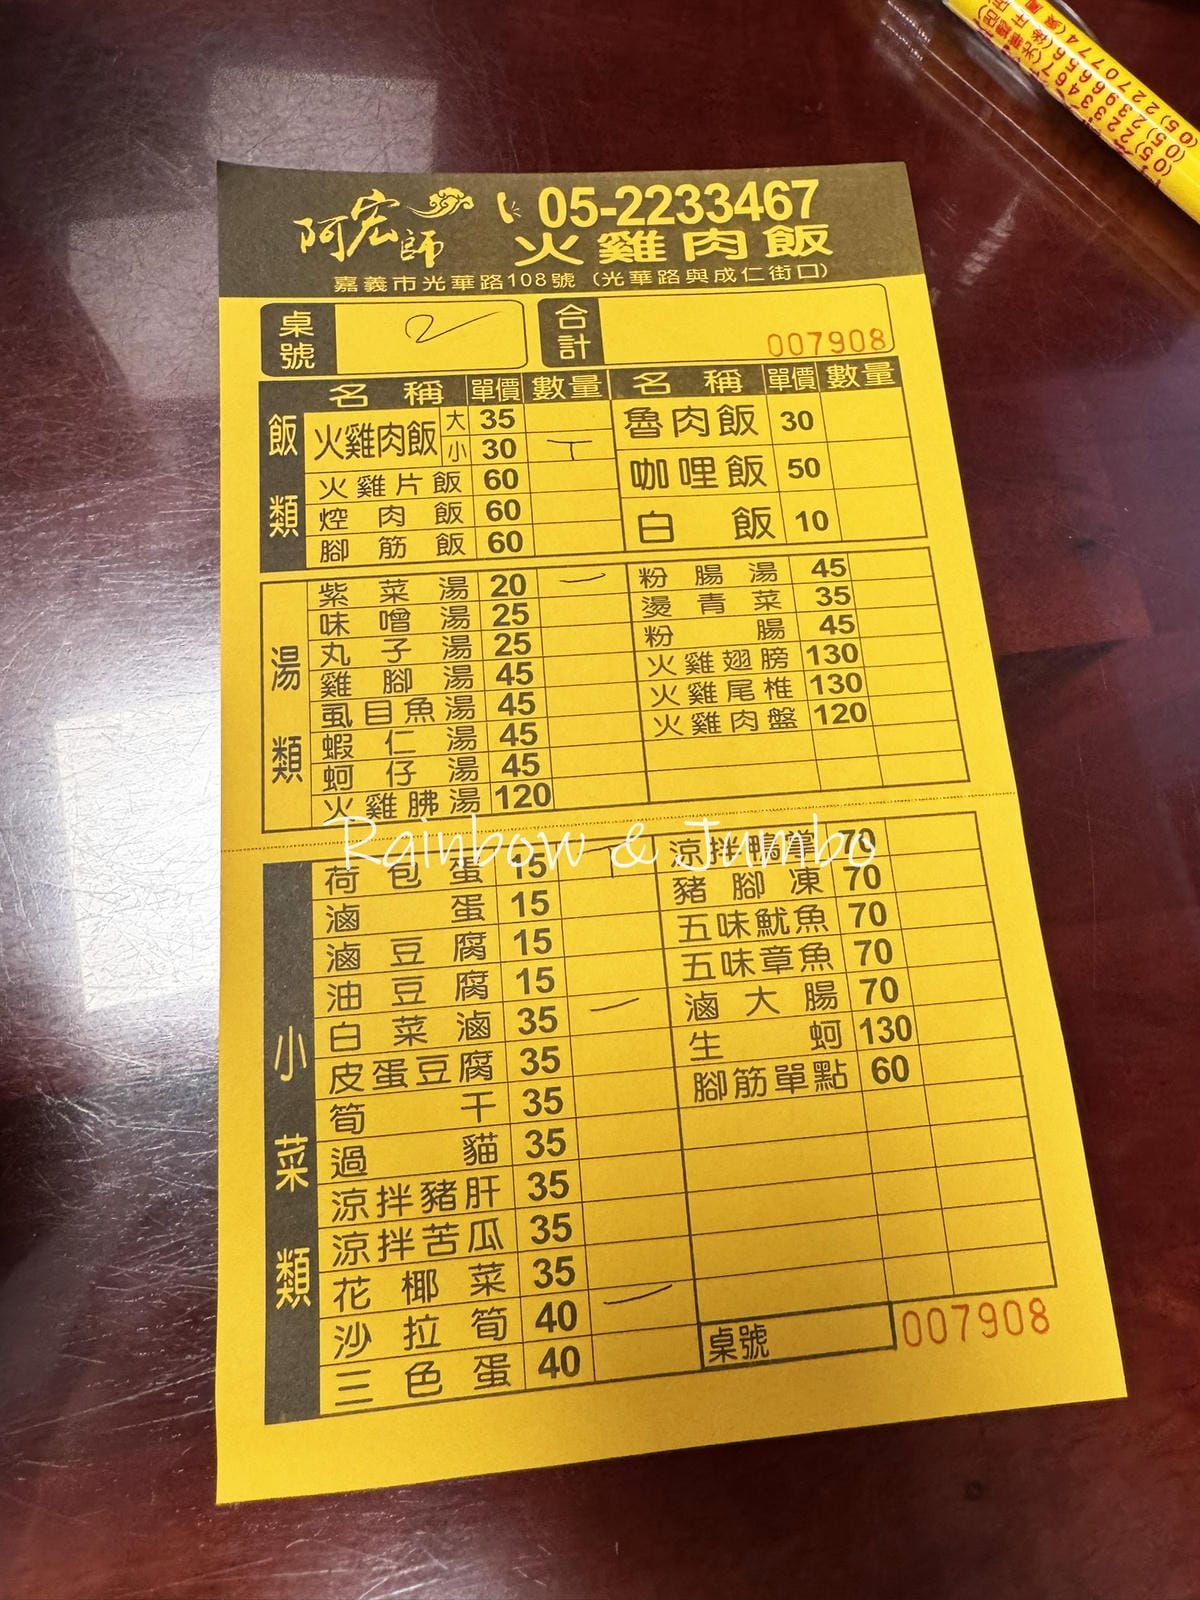 (05)2233467(光華總店)
(05)2396656(後庄店)
(05)2270774(
阿宏師 05-2233467
火雞肉飯
嘉義市光華路108號 (光華路與成仁街口)
桌號 2 合計 007908
名稱 單價 數量 名稱 單價 數量
飯類
火雞肉飯 大 35
小 30 T
火雞片飯 60
焢肉飯 60
腳筋飯 60
魯肉飯 30
咖哩飯 50
白飯 10
湯類
紫菜湯 20 一
味噌湯 25
丸子湯 25
雞腳湯 45
虱目魚湯 45
蝦仁湯 45
蚵仔湯 45
火雞胇湯 120
粉腸湯 45
燙青菜 35
粉腸 45
火雞翅膀 130
火雞尾椎 130
火雞肉盤 120
Rainbow & Jumbo
小菜類
荷包蛋 15 T
滷蛋 15
滷豆腐 15
油豆腐 15
白菜滷 35 一
皮蛋豆腐 35
筍干 35
過貓 35
涼拌豬肝 35
涼拌苦瓜 35
花椰菜 35
沙拉筍 40 一
三色蛋 40
涼拌鴨掌 70
豬腳凍 70
五味魷魚 70
五味章魚 70
滷大腸 70
生蚵 130
腳筋單點 60
桌號 007908